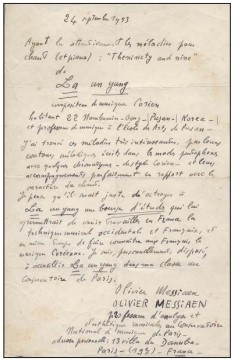 24 septembre 1953
Ayant lu attentivement les mélodies pour
chant (et piano) : "Theninety and nine"
de
La un yung
compositeur de musique Coréen
habitant 22 Nambumin-Dong-Pusan-Korea-
et professeur de musique à l'École des Arts de Pusan-
J'ai trouvé ces mélodies très intéressantes, par leurs
contours mélodiques écrits dans les modes pentaphones
avec quelques chromatismes, de style coréen - et leurs
accompagnements parfaitement en rapport avec le
caractère du chant.
Je pense qu'il serait juste d'octroyer à
La un yung une bourse d'études qui lui
permettrait de venir travailler en France la
technique musicale occidentale et Française, et
en même temps de faire connaître aux Français la
musique Coréenne. Je suis, personnellement, disposé
à accueillir La un yung dans ma classe au
Conservatoire de Paris.
Olivier Messiaen
OLIVIER MESSIAEN
professeur d'analyse et
d'esthétique musicales au Conservatoire
National de musique de Paris-
13 villa du Danube-
Paris-(19e)- France-